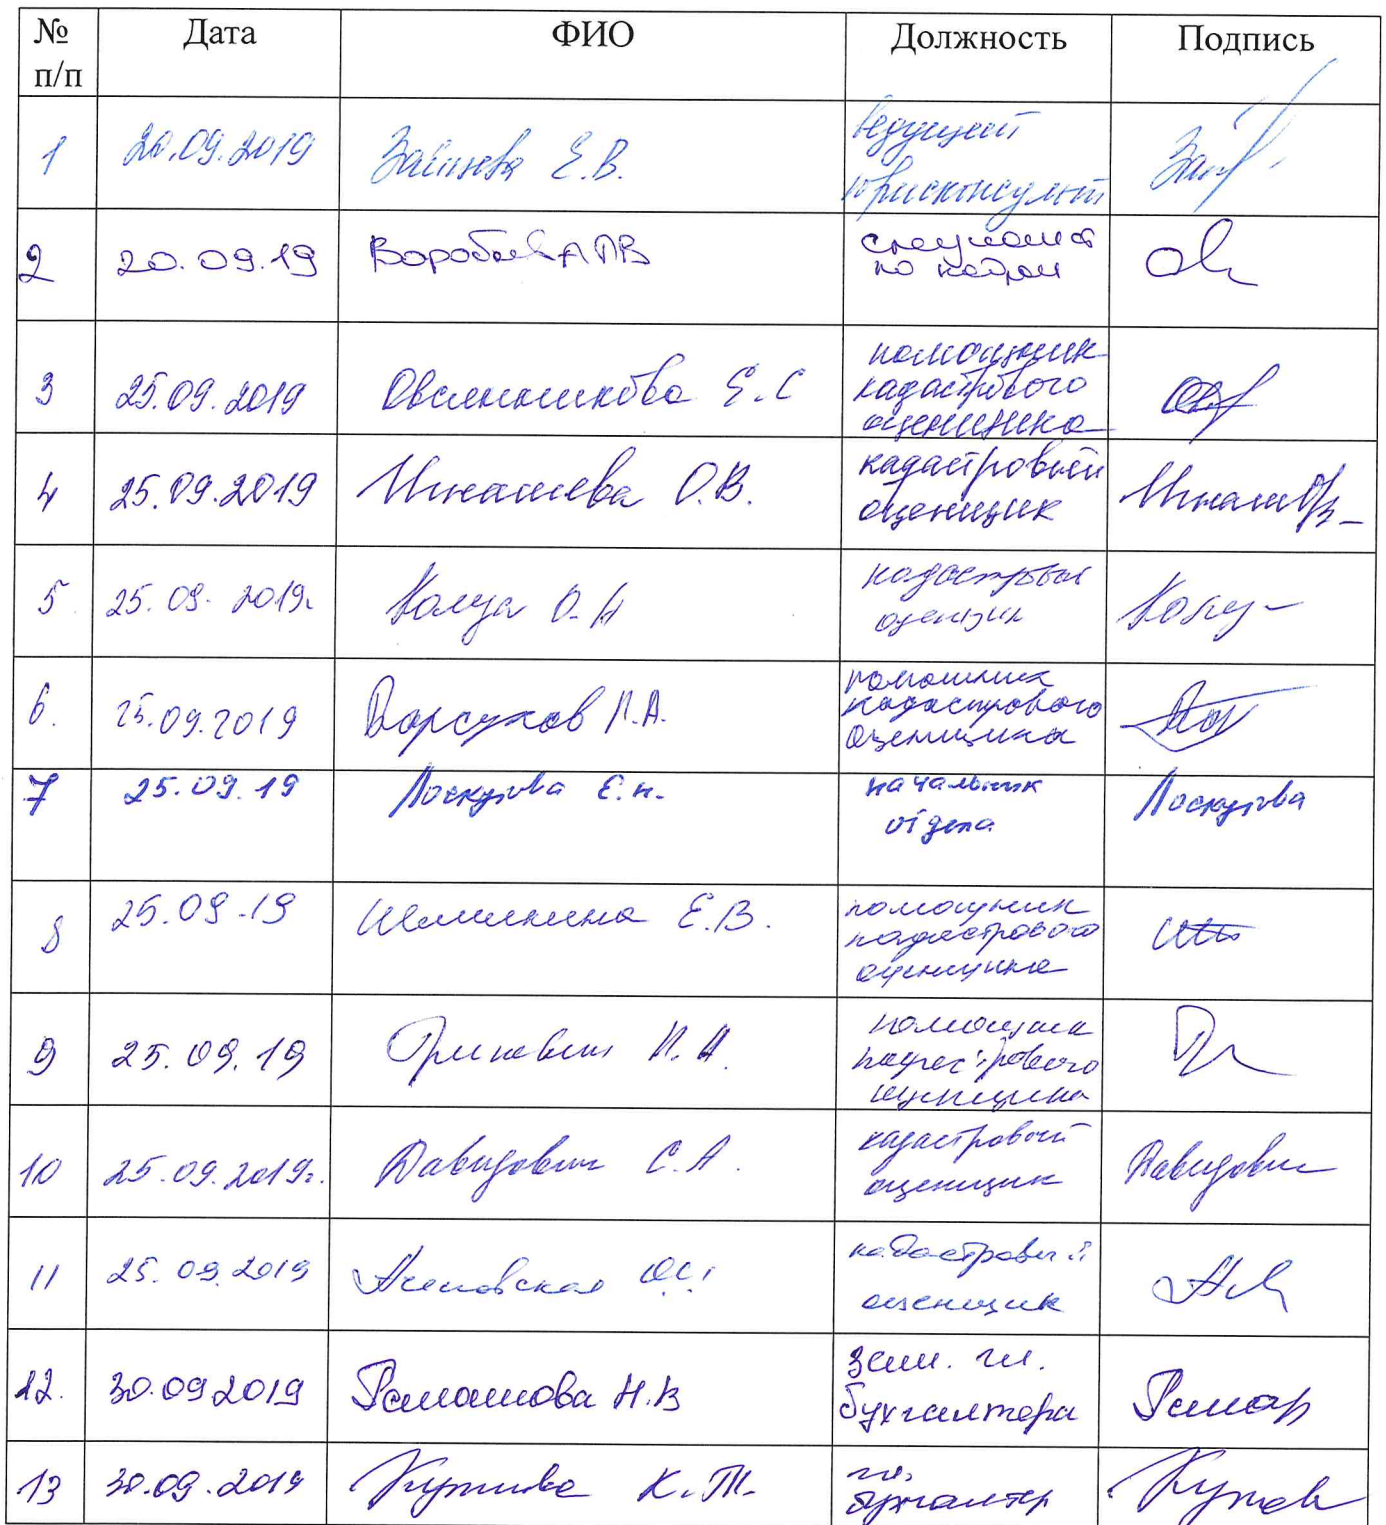 № п/п Дата ФИО Должность Подпись
1 20.09.2019 Е.В. ведущий юрисконсульт
2 20.09.19 Воробьева ПВ специалист по кадрам
3 25.09.2019 Овсянникова Е.С помощник кадастрового оценщика
4 25.09.2019 Минашева О.В. кадастровый оценщик
5 25.09.2019г. О.А кадастровый оценщик
6. 25.09.2019 Барсуков П.А. помощник кадастрового оценщика
7 25.09.19 Лоскутова Е.Н. начальник отдела Лоскутова
8 25.09.19 Е.В. помощник кадастрового оценщика
9 25.09.19 помощник кадастрового оценщика
10 25.09.2019г. Давидович С.А. кадастровый оценщик Давидович
11 25.09.2019 кадастровый оценщик
12. 30.09 2019 Ромашова Н.В зам. гл. бухгалтера
13 30.09.2019 К.Т. гл. бухгалтер